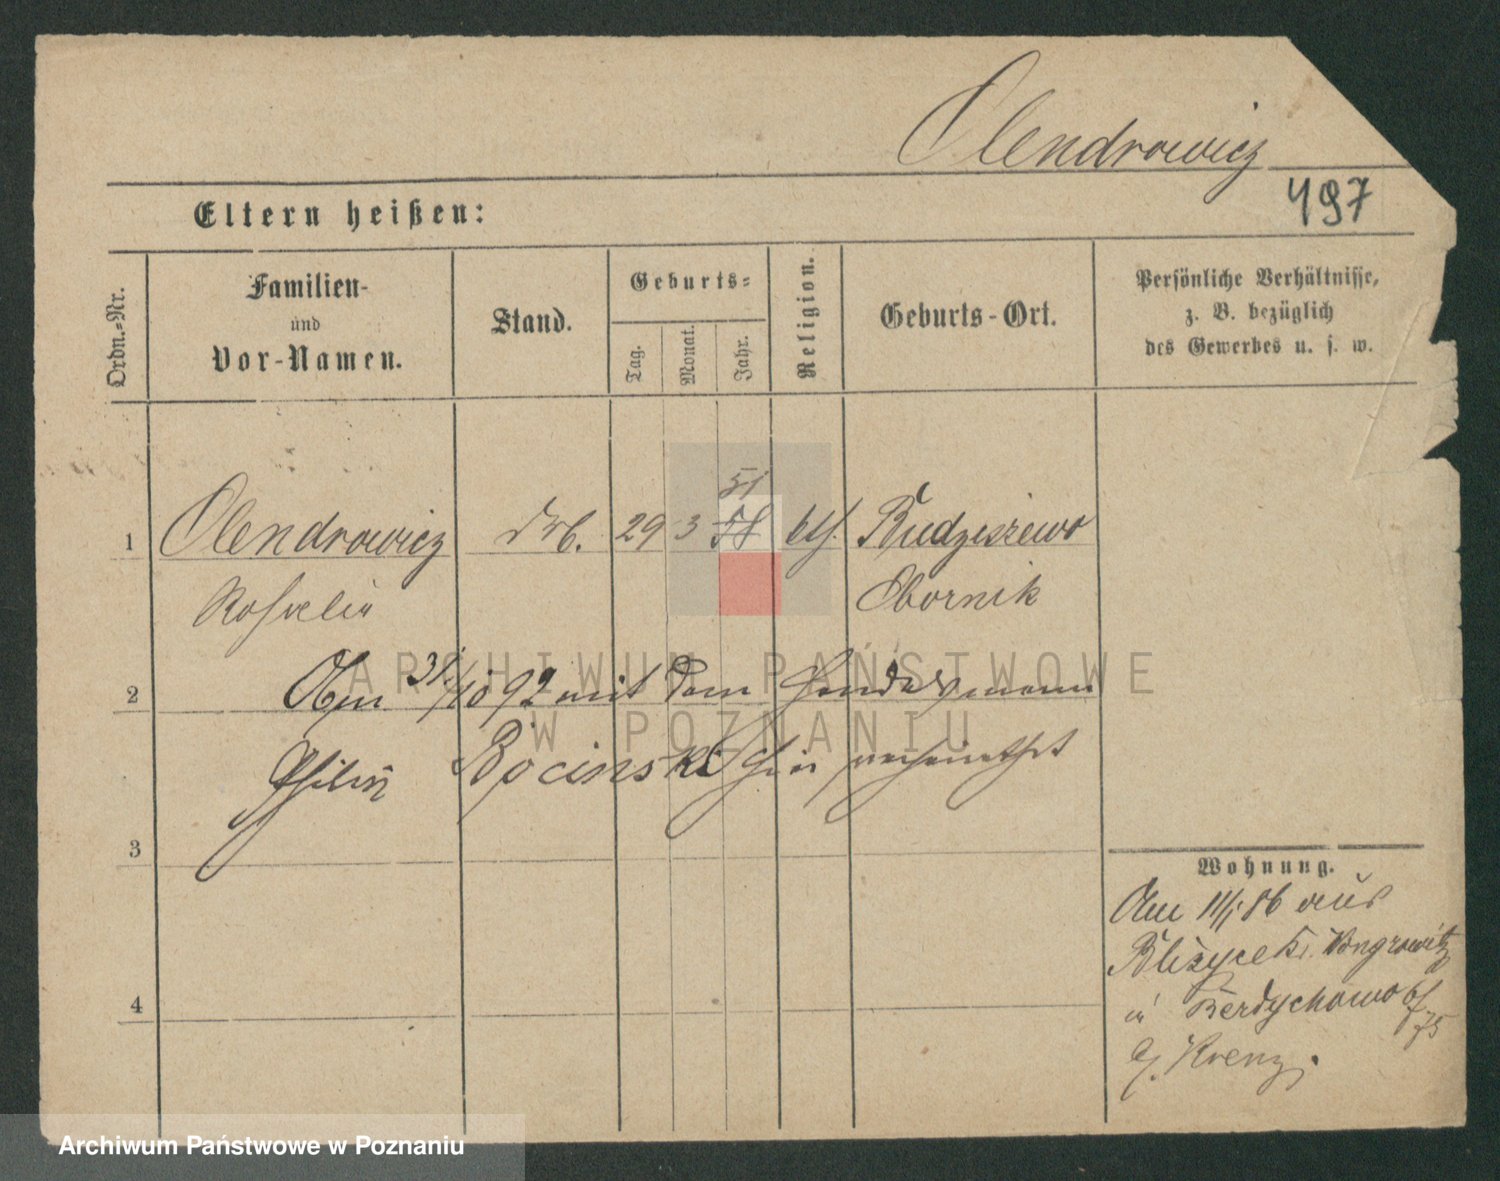 Olendrowicz
497
Eltern heißen:
Ordn.-Nr.
Familien-
und
Vor-Namen.
Stand.
Geburts-
Tag.
Monat.
Jahr.
Religion.
Geburts-Ort.
Persönliche Verhältnisse,
z. B. bezüglich
des Gewerbes u. s. w.
51
1 Olendrowicz 29 3 58 kth. Budziszewo
Rosalie Obornik
2 Am 31/10 92 mit dem Handelsmann
ARCHIWUM PAŃSTWOWE
W POZNANIU
Rocinski hier verheirathet
3
Wohnung.
Am 11/1 86 aus
Bliżyce Kr. Wongrowitz
in Berdychowo
75
b/. Krenz.
4
Archiwum Państwowe w Poznaniu